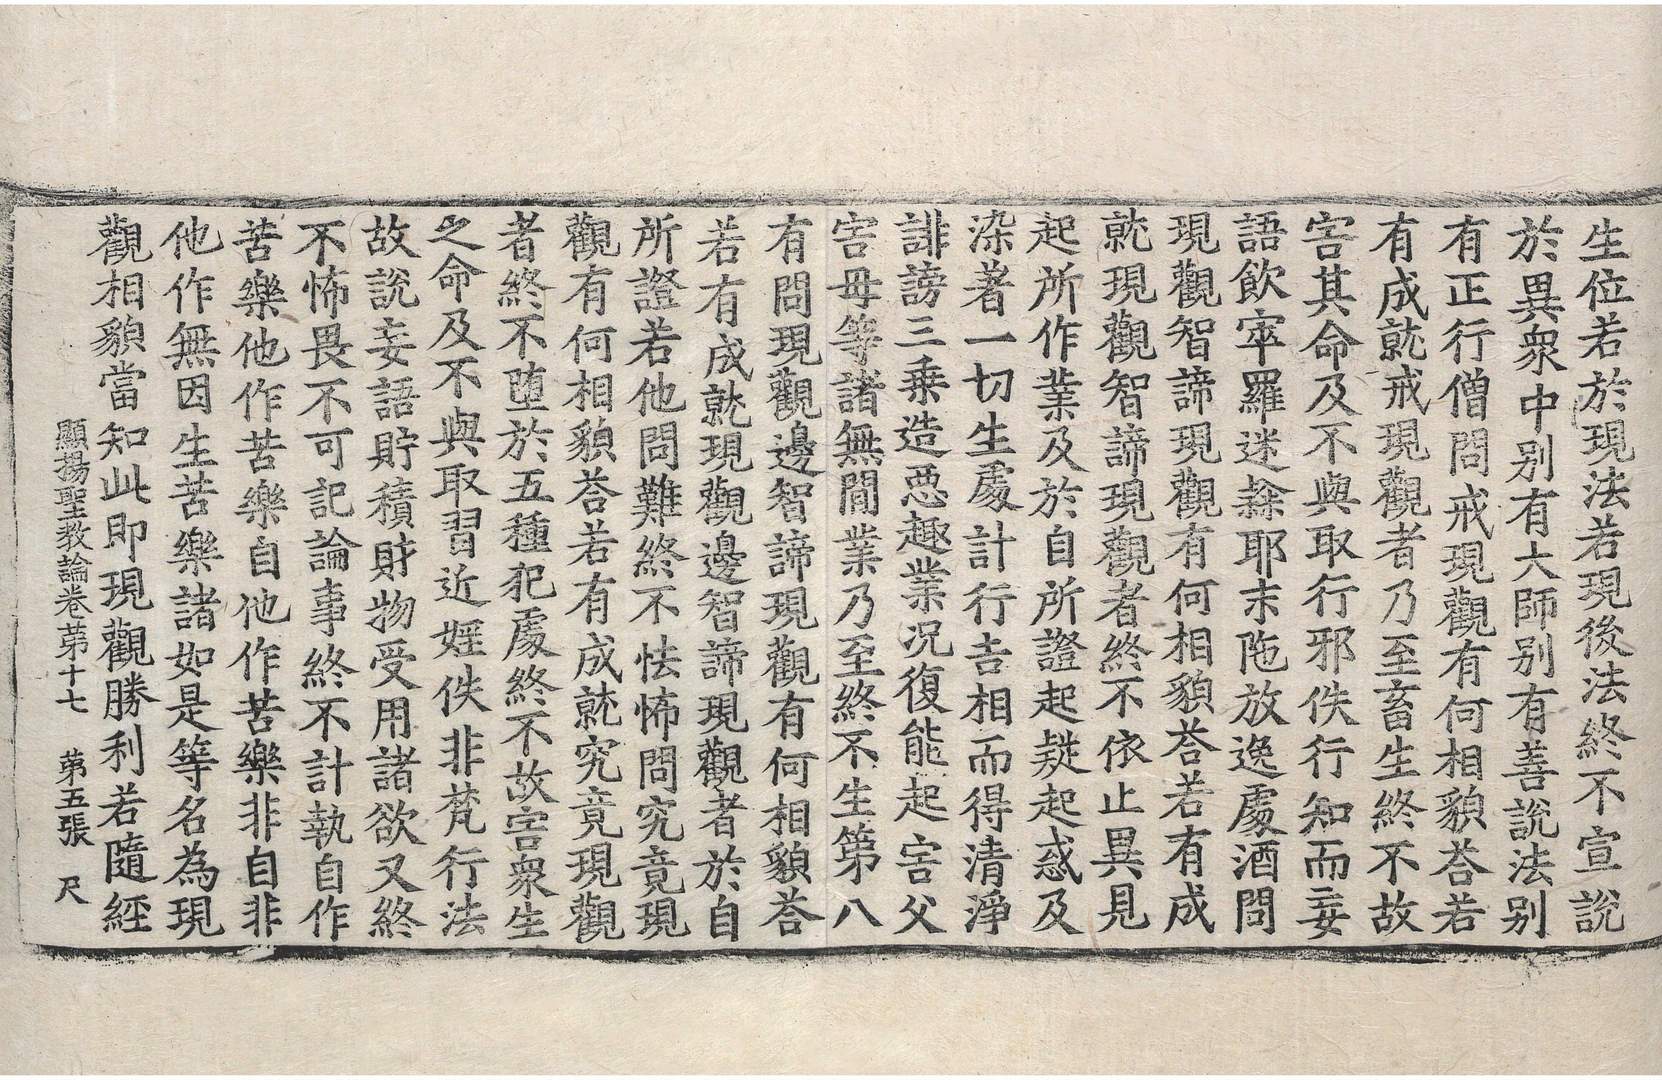 生位若於現法若現後法終不宣說
於異衆中別有大師別有善說法別
有正行僧問戒現觀有何相貌荅若
有成就戒現觀者乃至畜生終不故
害其命及不與取行邪佚行知而妄
語飲窣羅迷隸耶末陁放逸處酒問
現觀智諦現觀有何相貌荅若有成
就現觀智諦現觀者終不依止異見
起所作業及於自所證起疑起惑及
染著一切生處計行吉相而得清淨
誹謗三乗造惡趣業況復能起害父
害母等諸無間業乃至終不生第八
有問現觀邊智諦現觀有何相貌荅
若有成就現觀邊智諦現觀者於自
所證若他問難終不怯怖問究竟現
觀有何相貌荅若有成就究竟現觀
者終不墮於五種犯處終不故害衆生
之命及不與取習近婬佚非梵行法
故說妄語貯積財物受用諸欲又終
不怖畏不可記論事終不計執自作
苦樂他作苦樂自他作苦樂非自非
他作無因生苦樂諸如是等名為現
觀相貌當知此即現觀勝利若隨經
顯揚聖教論卷第十七 第五張 尺